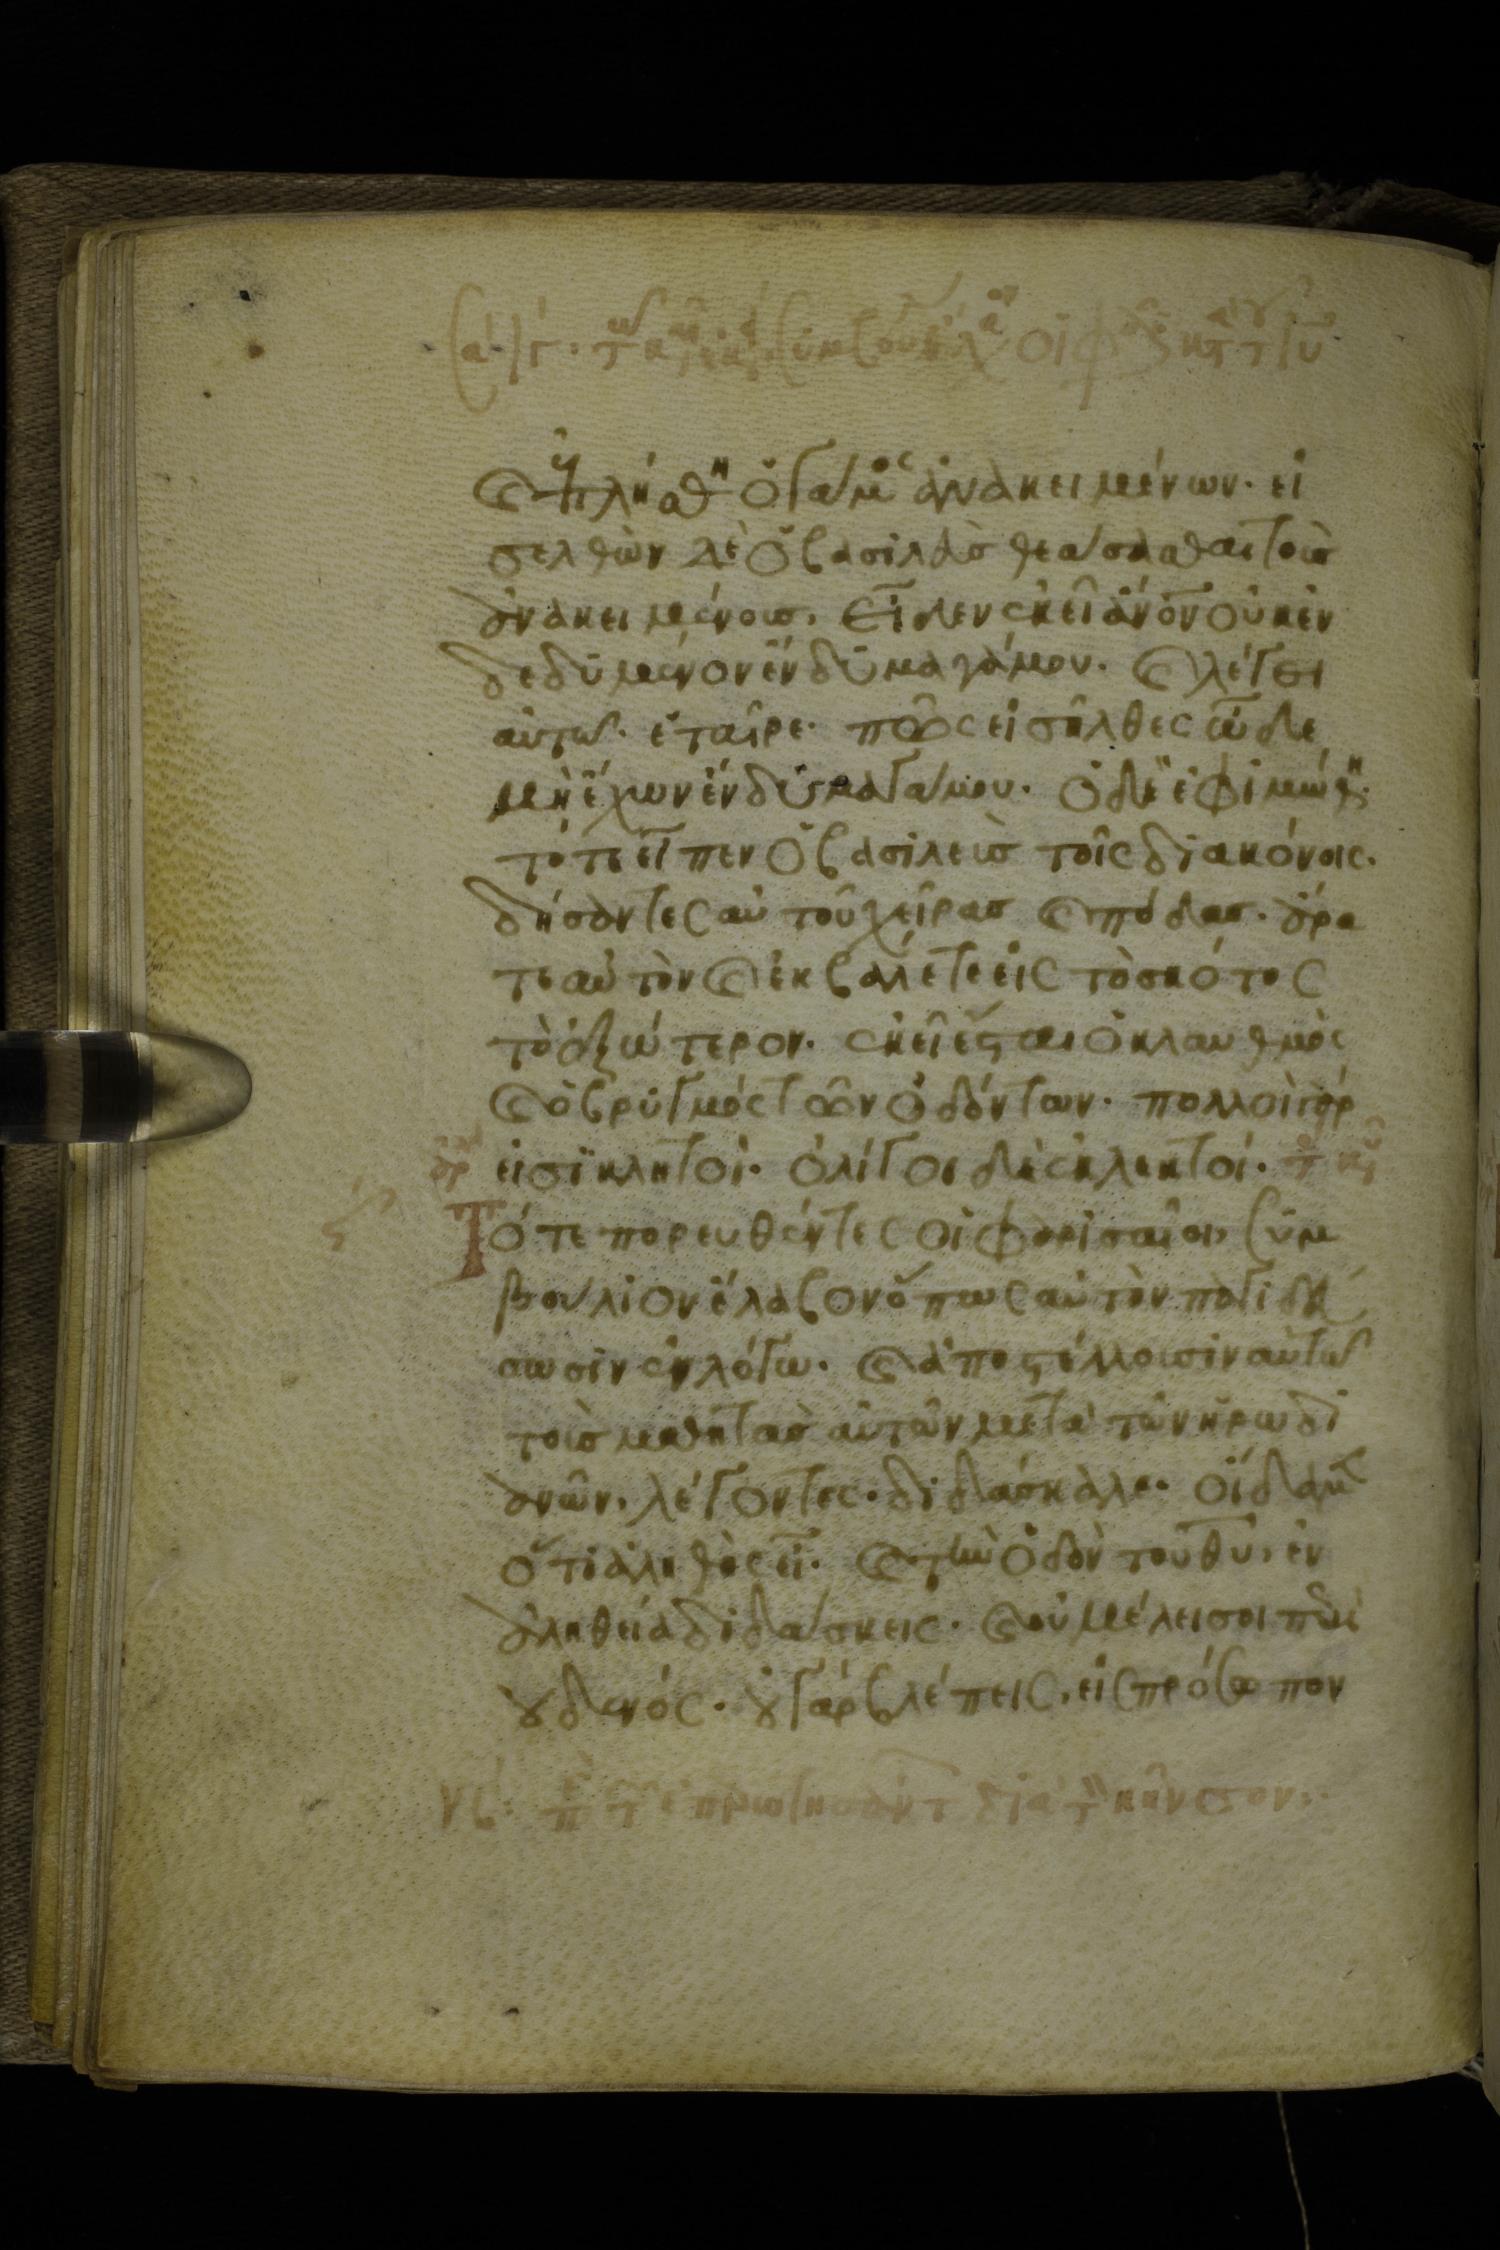 καὶ ἐπλήσθη ὁ γάμος ἀνακειμένων. εἰ
σελθὼν δὲ ὁ βασιλεὺς θεάσασθαι τοὺς
ἀνακειμένους, εἶδεν ἐκεῖ ἄνον οὐκ ἐν
δεδυμένον ἔνδυμα γάμου. καὶ λέγει
αὐτῶ. ἑταῖρε. πῶς εἰσῆλθες ὧδε
μὴ ἔχων ἔνδυμα γάμου. ὁ δὲ ἐφιμώθη.
τότε εἶπεν ὁ βασιλεὺς τοῖς διακόνοις.
δήσαντες αὐτοῦ χεῖρας καὶ πόδας. ἄρα
τε αὐτὸν καὶ ἐκβάλετε εἰς τὸ σκότος
τὸ ἐξώτερον. ἐκεῖ ἔσται ὁ κλαυθμὸς
καὶ ὁ βρυγμός τῶν ὀδόντων. πολλοὶ γάρ
εἰσϊ κλητοί. ὀλίγοι δὲ ἐκλεκτοί.
Τότε πορευθέντες οἱ φαρισαῖοι, συμ
βούλιον ἔλαβον ὅπως αὐτὸν παγιδεύ
σωσιν ἐν λόγω. καὶ ἀποστέλλουσιν αὐτῶ
τοὺς μαθητὰς αὐτῶν μετὰ τῶν ἡρωδι
ανῶν, λέγοντες. διδάσκαλε. οἴδαμεν
ὅτι ἀληθὴς εἶ. καὶ τὴν ὁδὸν τοῦ θυ, ἐν
ἀληθεία διδάσκεις. καὶ οὐ μέλει σοι περὶ
οὐδενός. οὐ γὰρ βλέπεις, εἰς πρόσωπον
νβ. περὶ τῶν ἐπερωτησάντων διὰ τὸν κῆνσον.